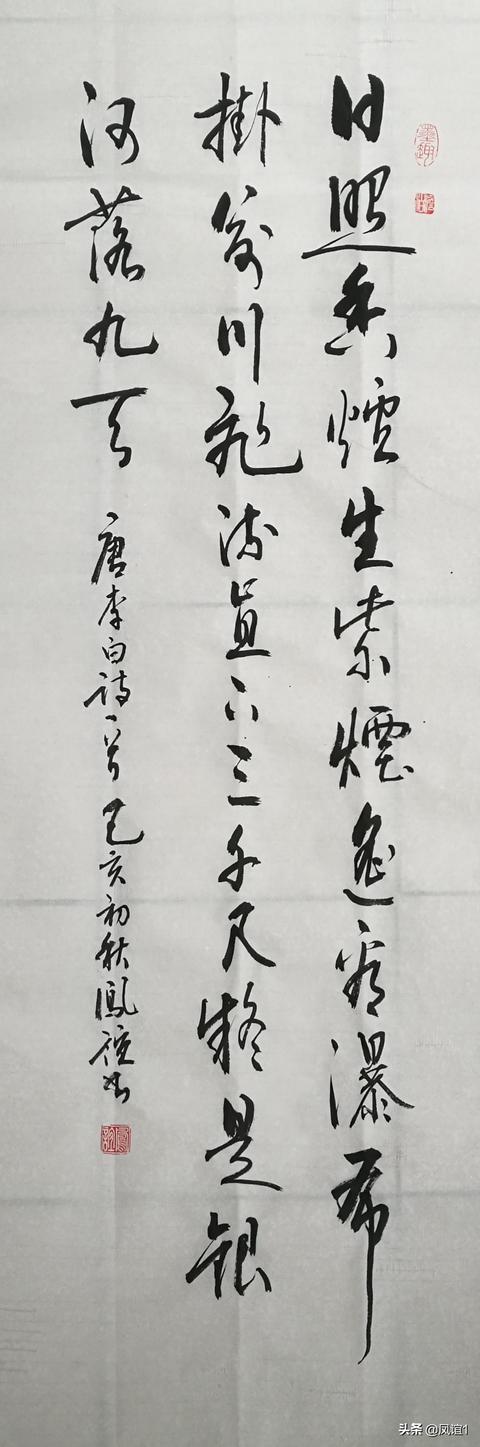 墨趣
日照香爐生紫煙遙看瀑布
掛前川飛流直下三千尺疑是銀
河落九天 唐李白詩一首己亥初秋鳳誼書
鳳誼
头条 @凤谊1